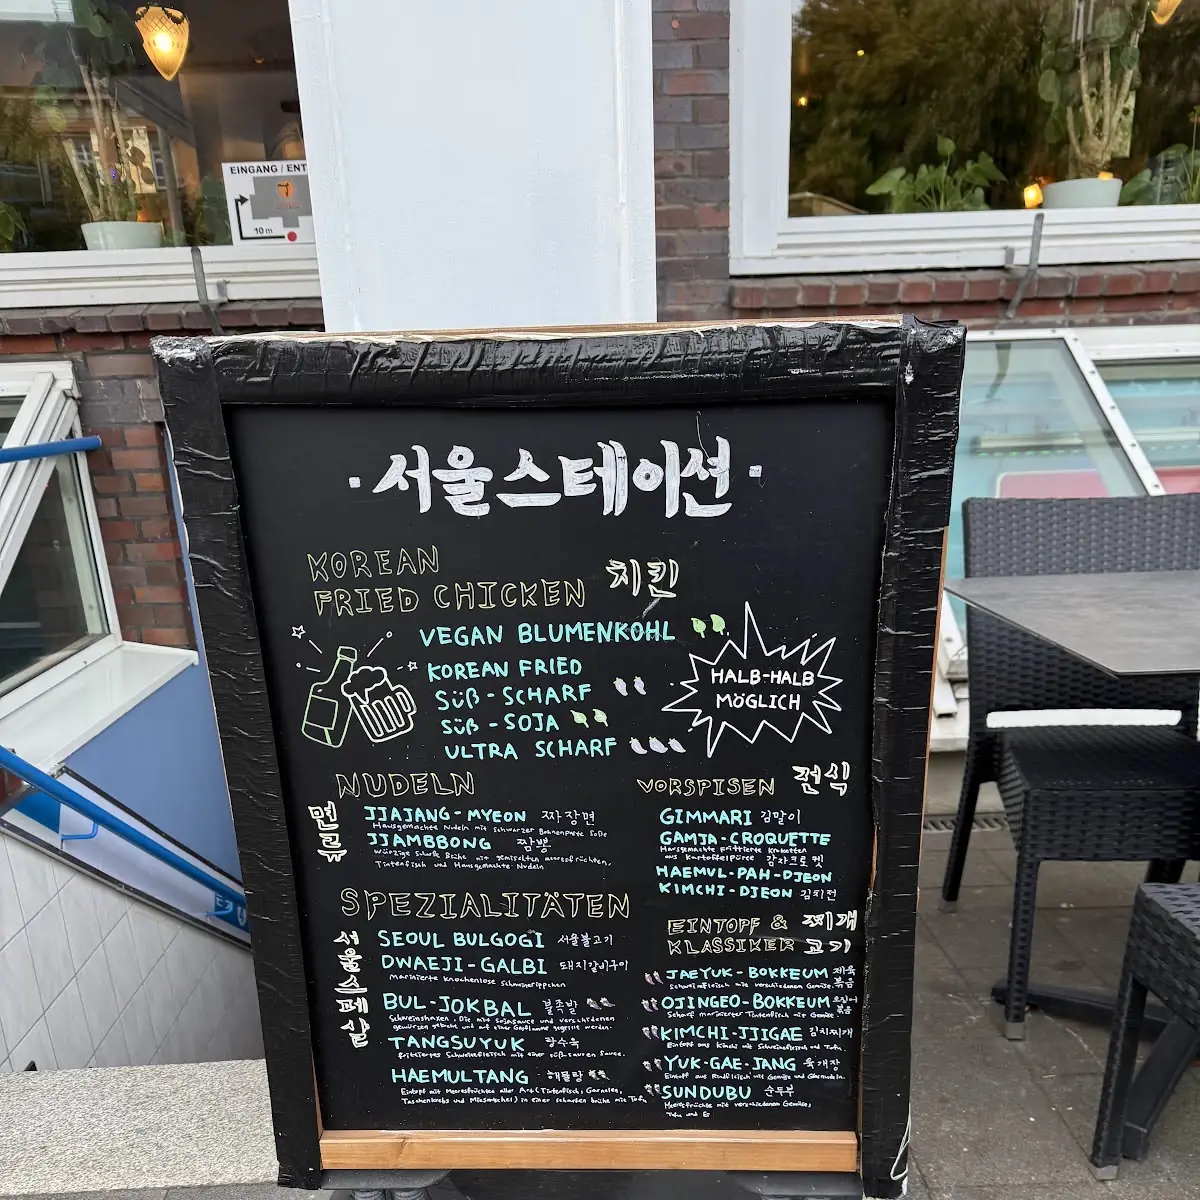 EINGANG / ENT
10 m
서울스테이션
KOREAN
FRIED CHICKEN 치킨
VEGAN BLUMENKOHL
KOREAN FRIED
SÜß-SCHARF
SÜß-SOJA
ULTRA SCHARF
HALB-HALB
MÖGLICH
NUDELN
면류
JJAJANG-MYEON 짜장면
Hausgemachte Nudeln mit schwarzer Bohnenpaste Soße
JJAMBBONG 짬뽕
Würzige scharfe Brühe mit gemischten Meeresfrüchten,
Tintenfisch und Hausgemachte Nudeln
VORSPISEN 전식
GIMMARI 김말이
GAMJA-CROQUETTE
Hausgemachte frittierte Kroketten
aus Kartoffelpüree 감자크로켓
HAEMUL-PAH-DJEON
KIMCHI-DJEON 김치전
SPEZIALITÄTEN
서울스페샬
SEOUL BULGOGI 서울불고기
DWAEJI-GALBI 돼지갈비구이
Marinierte knochenlose Schweinerippchen
BUL-JOKBAL 불족발
Schweinshaxen, Die mit Sojasauce und verschiedenen
gewürzen gekocht und auf einer Gasflamme gegrillt werden.
TANGSUYUK 탕수육
frittiertes Schweinefleisch mit einer süß-sauren Sauce.
HAEMULTANG 해물탕
Eintopf mit Meeresfrüchten aller Art (Tintenfisch, Garnelen,
Taschenkrebs und Miesmuschel) in einer scharfen brühe mit Tofu
EINTOPF & 찌개
KLASSIKER 고기
JAEYUK-BOKKEUM 제육볶음
Schweinefleisch mit verschiedenen Gemüse.
OJINGEO-BOKKEUM 오징어볶음
Scharf marinierter Tintenfisch mit Gemüse
KIMCHI-JJIGAE 김치찌개
Eintopf aus Kimchi mit Schweinefleisch und Tofu.
YUK-GAE-JANG 육개장
Eintopf aus Rindfleisch mit Gemüse und Glasnudeln.
SUNDUBU 순두부
Meeresfrüchte mit verschiedenen Gemüse,
Tofu und Ei